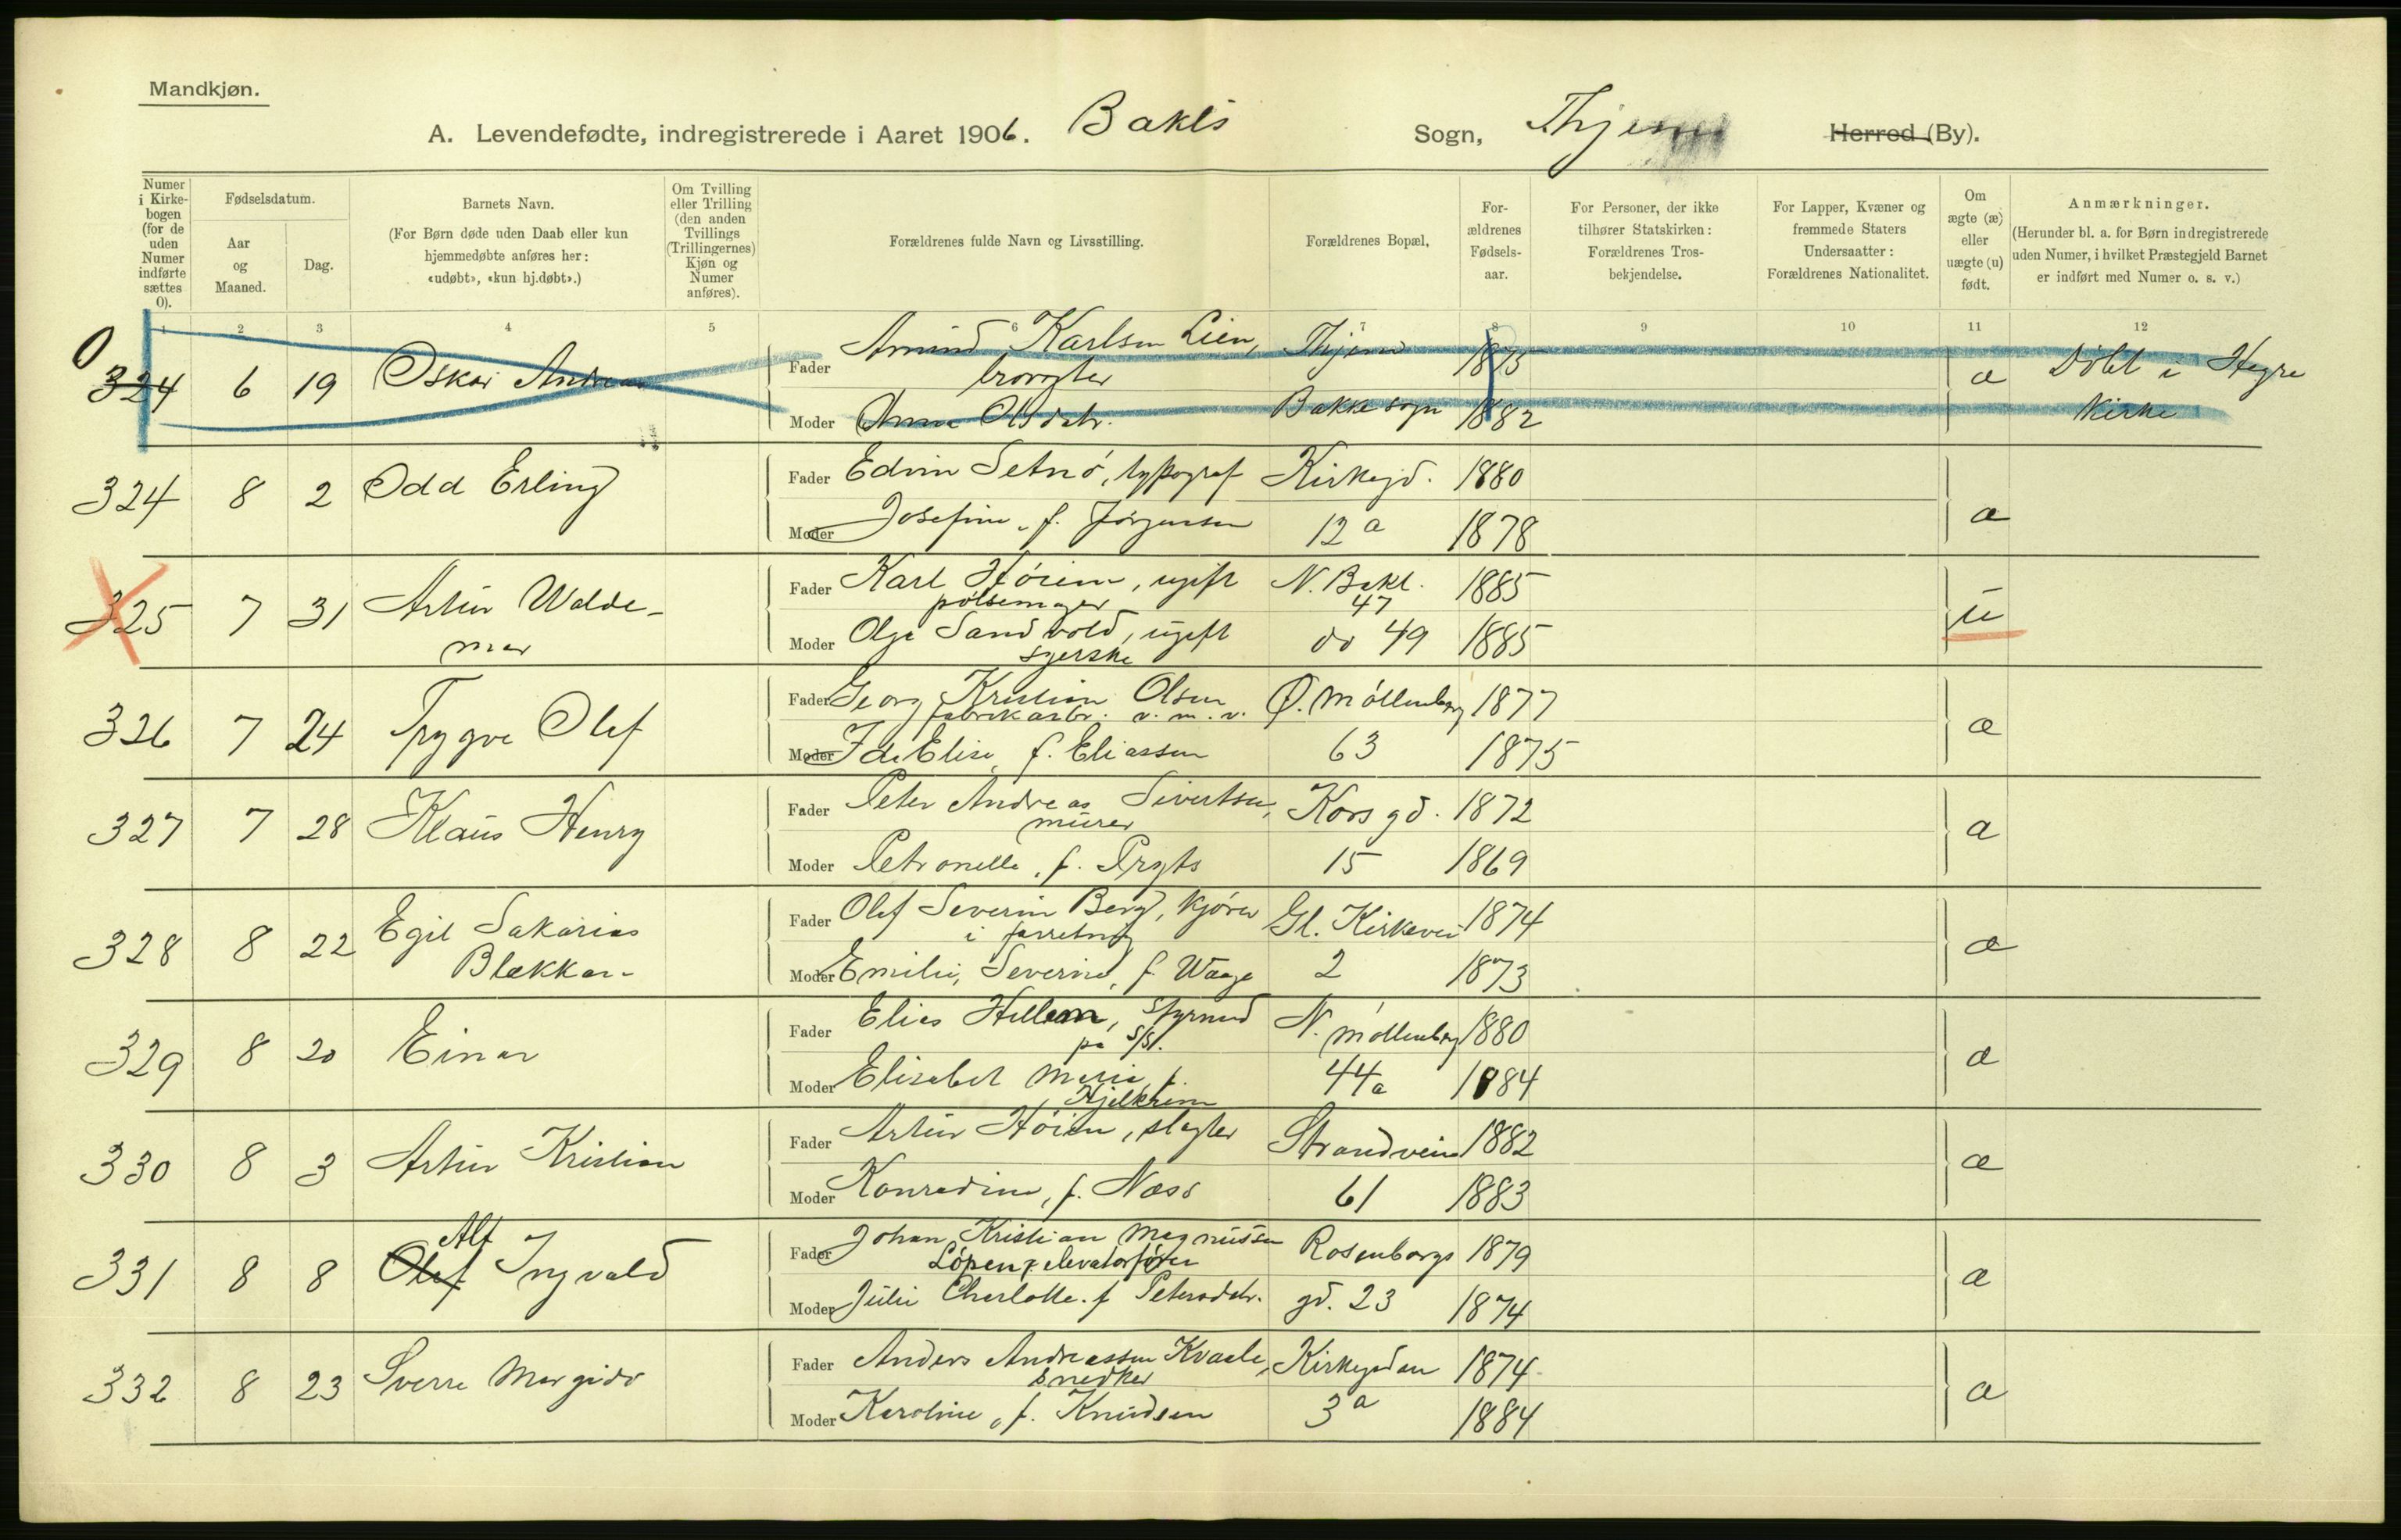 Mandkjøn.
A. Levendefødte, indregistrerede i Aaret 1906. Bakls Sogn, Thjem Herred (By).
Numer i Kirkebogen (for de uden Numer indførte sættes 0).
Fødselsdatum.
Aar og Maaned.
Dag.
Barnets Navn.
(For Børn døde uden Daab eller kun hjemmedøbte anføres her: «udøbt», «kun hj.døbt».)
Om Tvilling eller Trilling (den anden Tvillings (Trillingernes) Kjøn og Numer anføres).
Forældrenes fulde Navn og Livsstilling.
Forældrenes Bopæl,
Forældrenes Fødselsaar.
For Personer, der ikke tilhører Statskirken: Forældrenes Trosbekjendelse.
For Lapper, Kvæner og fremmede Staters Undersaatter: Forældrenes Nationalitet.
Om ægte (æ) eller uægte (u) født.
Anmærkninger.
(Herunder bl. a. for Børn indregistrerede uden Numer, i hvilket Præstegjeld Barnet er indført med Numer o. s. v.)
1 2 3 4 5 6 7 8 9 10 11 12
0
324 6 19 Oskar Andreas
Fader Karlsen Lien, Thjem 1875
Moder Anna Olsdatr. Bakke sogn 1882
æ Döbt i Hegre
Kirke
324 8 2 Odd Erling
Fader Edvin Setnö, typograf Kirkegd. 1880
Moder Josefine, f. Jörgensen 12a 1878
æ
325 7 31 Artur Walde-
mar
Fader Karl Höiem, ugift N. Bakl. 1885
pölsemager 47
Moder Olga Sandvold, ugift do 49 1885
syerske
u
326 7 24 Trygve Olef
Fader Georg Kristian Olsen Ö. Möllenberg 1877
fabrikarbr. v. m. v.
Moder Ida Elise, f. Eliassen 63 1875
æ
327 7 28 Klaus Henry
Fader Peter Andreas Sivertsen, Korsgd. 1872
murer
Moder Petronelle, f. Prytz 15 1869
æ
328 8 22 Egil Sakarias
Blekkan
Fader Olef Severin Berg, kjörer Gl. Kirkevei 1874
i forretning
Moder Emilie, Severine, f. Waage 2 1873
æ
329 8 20 Einar
Fader Elias Hellem, styrmd N. Möllenberg 1880
på S/Sl.
Moder Elisabet Marie f. 44a 1884
Hjelkrem
æ
330 8 3 Artur Kristian
Fader Artur Höiem, slagter Strandvein 1882
Moder Konradine, f. Næss 61 1883
æ
331 8 8 Olef Alf Ingvald
Fader Johan Kristian Magnussen Rosenborgs 1879
elevatorförer
Moder Julie Charlotte f Petersdatr. gd. 23 1874
æ
332 8 23 Sverre Margido
Fader Anders Andreassen Kvaale, Kirkegaden 1874
snedker
Moder Karoline, f. Knudsen 3a 1884
æ